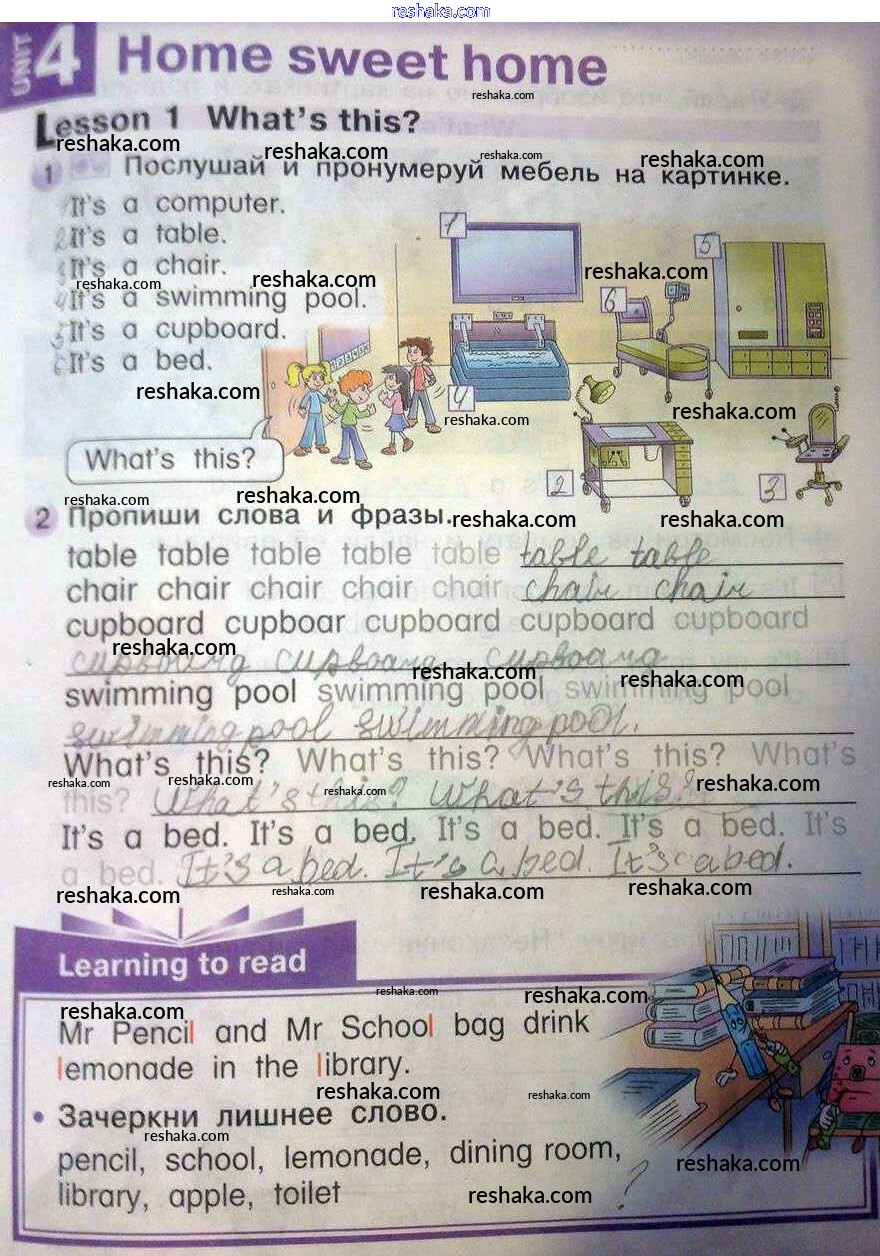 reshaka.com
UNIT 4 Home sweet home
reshaka.com
Lesson 1 What's this?
reshaka.com reshaka.com reshaka.com reshaka.com
1 Послушай и пронумеруй мебель на картинке.
1 It's a computer.
2 It's a table.
3 It's a chair.
reshaka.com reshaka.com reshaka.com
4 It's a swimming pool.
5 It's a cupboard.
6 It's a bed.
1 5 6
reshaka.com reshaka.com reshaka.com
4
What's this?
2 3
reshaka.com reshaka.com
2 Пропиши слова и фразы.
reshaka.com reshaka.com
table table table table table table table
chair chair chair chair chair chair chair
cupboard cupboar cupboard cupboard cupboard
reshaka.com
cupboard cupboard cupboard
reshaka.com reshaka.com
swimming pool swimming pool swimming pool
swimming pool swimming pool.
What's this? What's this? What's this? What's
reshaka.com reshaka.com reshaka.com reshaka.com
this? What's this? What's this?
It's a bed. It's a bed. It's a bed. It's a bed. It's
a bed. It's a bed. It's a bed. It's a bed.
reshaka.com reshaka.com reshaka.com reshaka.com
Learning to read
reshaka.com reshaka.com
reshaka.com
Mr Pencil and Mr School bag drink
lemonade in the library.
reshaka.com reshaka.com
• Зачеркни лишнее слово.
reshaka.com
pencil, school, lemonade, dining room,
reshaka.com
library, apple, toilet ?
reshaka.com